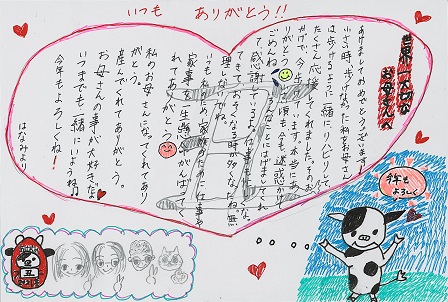 いつも ありがとう!!
世界一大切な
お母さんへ
あけましておめでとうございます!
小さい時、歩けなかった私をお母さん
は歩けるように一緒にリハビリして、
たくさん応援してくれました。そのお
かげで、今歩けています。本当にあり
がとう
ごめんね。
て、感謝しているよ。
いつも私のため、家族のために仕事や
家事を一生懸命がんばってく
れてありがとう
私のお母さんになってくれてあり
がとう。
産んでくれてありがとう。
お母さんの事が大好きだよ
いつまでも一緒にいようね♪
今年もよろしくね!
はなみより
今年も
よろしく
丑